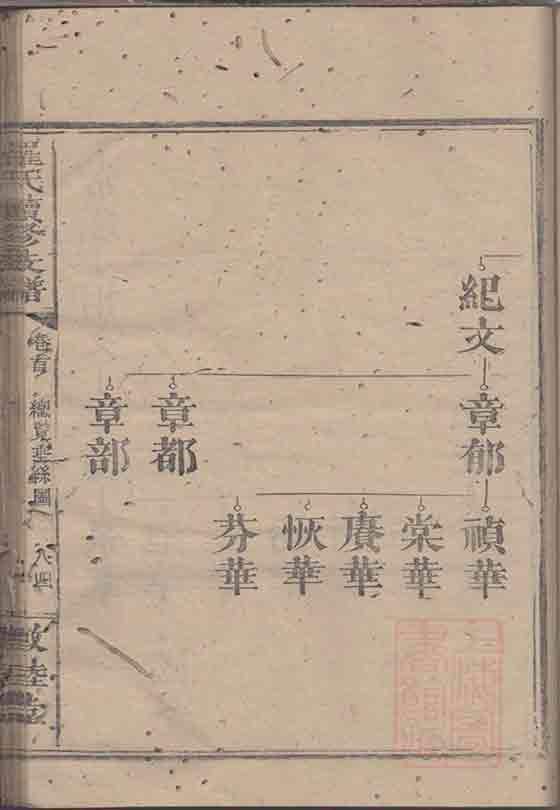 紀文
章郁
禎華
棠華
賡華
恢華
芬華
章都
章部
羅氏續修支譜
卷首
總覽垂絲圖
八四
敦睦堂